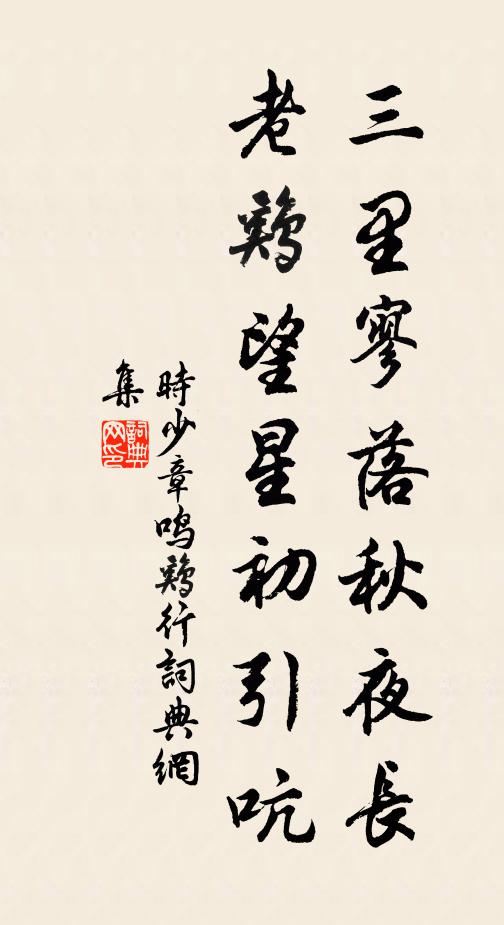 三里寥落秋夜長
老鷄望星初引吭
時少章鳴鷄行詞典網
集
詞典網印